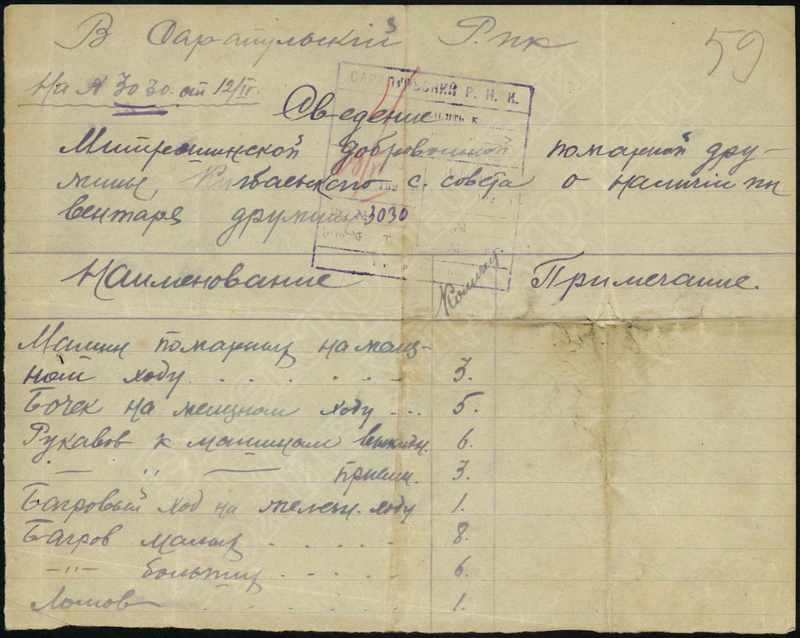 В Сарапульский Рик
59
На № 3030 от 12/IV.
САРАПУЛЬСКИЙ Р. И. К.
Сведение
Митрошинской добровольной пожарной дру-
жины, с. совета о наличии ин
вентаря дружины 3030
Наименование Колич. Примечание.
Машин пожарных на желез-
ном ходу . . . . . . 3.
Бочек на железном ходу ... 5.
Рукавов к машинам выкидн. 6.
— „ — прием. 3.
Багровый ход на железн. ходу 1.
Багров малых . . . . 8.
—„— больших . . . . 6.
Ломов . . . . . 1.